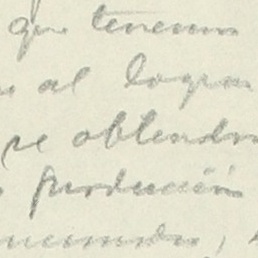 que tenemos
al lograr
se obtendr
producción